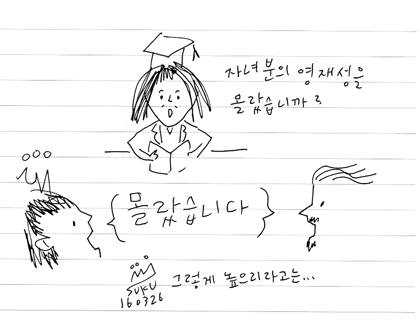 자녀분의 영재성을
몰랐습니까?
몰랐습니다
그렇게 높으리라고는...
SUKU
160326